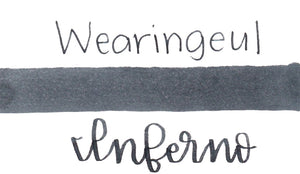 Wearingeul
Inferno